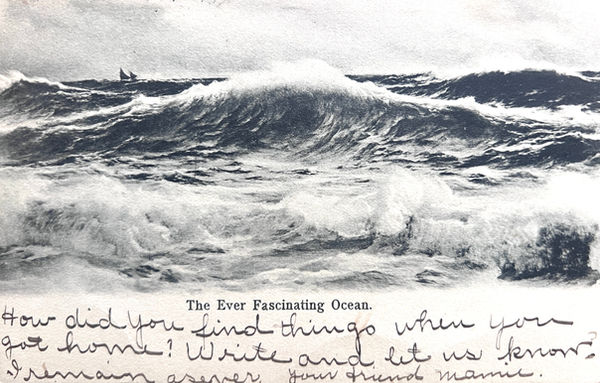 The Ever Fascinating Ocean.
How did you find things when you
got home? Write and let us know?
I remain as ever. Your friend Mamie.